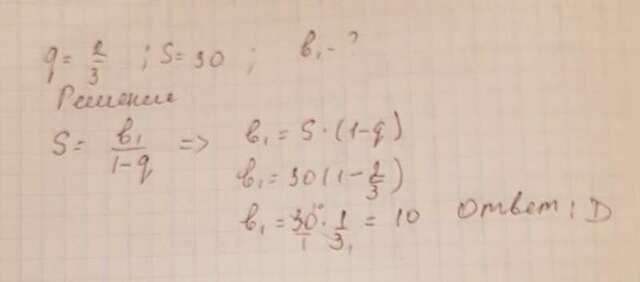 q = 2/3 ; S = 30 ; b₁ - ?
Решение
S = b₁/(1-q) => b₁ = S · (1-q)
b₁ = 30(1 - 2/3)
b₁ = 30¹⁰/1 · 1/3₁ = 10 Ответ: D